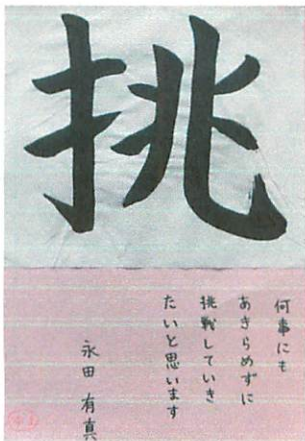 挑
何事にも
あきらめずに
挑戦していき
たいと思います
永田 有真